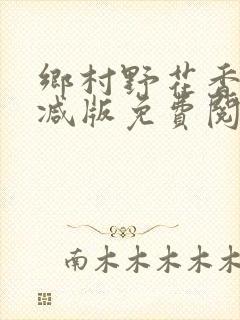 鄉村野花香
减版免費閱
南木木木木木